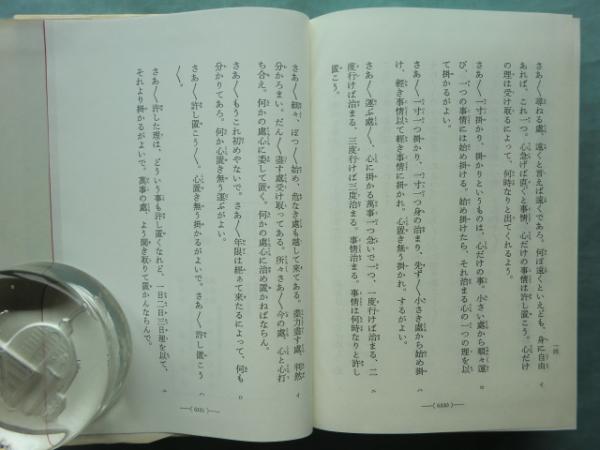 一四
さあ／＼尋ねる處、遠くと言えば遠くであろ。何ぼ遠くといえども、身に自由
あれば、これ一つ。心急げば直ぐと事情、心だけの事情は許し置こう。心だけ
の理は受け取るによって、何時なりと出てくれるよう。
さあ／＼一寸掛かり、掛かりというものは、心だけの事。小さい處から順々運
び、一つの事情には始め掛ける。始め掛けたら、それ治まる心の一つの理を以
て掛かるがよい。
さあ／＼一寸一つ掛かり、一寸一つ身の治まり、先ず／＼小さき處から始め掛
け、輕き事情以て輕き事情に掛かれ。心置き無う掛かれ。するがよい。
さあ／＼運ぶ處／＼、心に掛かる萬事一つ急いで一つ、一度行けば治まる、二
度行けば治まる、三度行けば三度治まる。事情治まる。事情は何時なりと許し
置こう。
—( 6030 )—
さあ／＼細々、ぼつ／＼始め、危なき處も越して來てある。盡力盡す處、判然
分かろまい。だん／＼盡す處受け取ってある。所々さあ／＼今の處、心と心打
ち合え。何かの處心に委して置く。何かの處心に治め置かねばならん。
さあ／＼もうこれ初めやないで。さあ／＼年限は經ちて來たるによって、何も
分かりてあろ。何か心置き無う運ぶがよい。
さあ／＼許し置こう／＼。心置き無う掛かるがよいで。さあ／＼許し置こう
／＼。
さあ／＼許した理は、どういう事も許し置くなれど、一日二日三日理を以て、
それより掛かるがよいで。萬事の處、よう聞き取りて置かんならんで。
—( 6031 )—